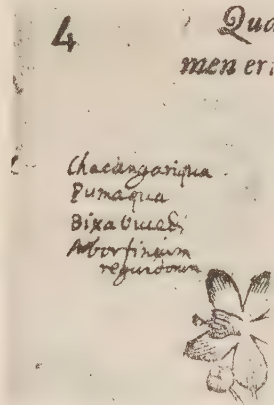 4
Qua
men eri
Chacangariqua
Pumaqua
Bixa Ouiedi
Arbor finium
regundorum